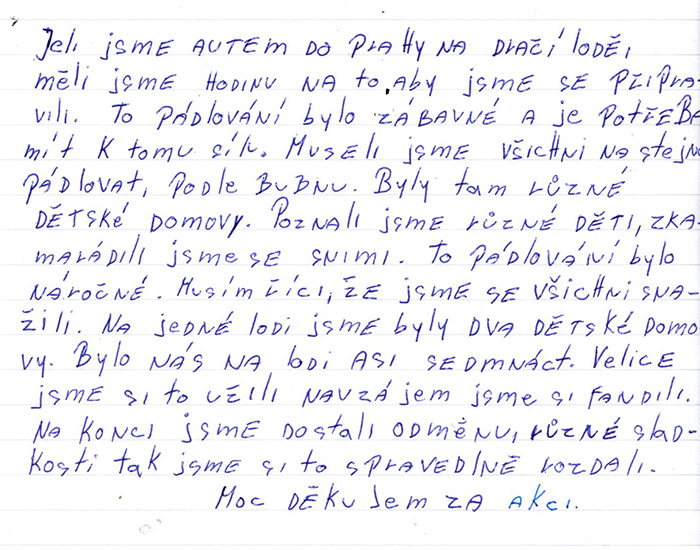 Jeli jsme autem do Prahy na dračí lodě,
měli jsme hodinu na to, aby jsme se připra-
vili. To pádlování bylo zábavné a je potřeba
mít k tomu sílu. Museli jsme všichni na stejno
pádlovat, podle bubnu. Byly tam různé
dětské domovy. Poznali jsme různé děti, zka-
marádili jsme se snimi. To pádlování bylo
náročné. Musím říci, že jsme se všichni sna-
žili. Na jedné lodi jsme byly dva dětské domo
vy. Bylo nás na lodi asi sedmnáct. Velice
jsme si to užili navzájem jsme si fandili.
Na konci jsme dostali odměnu, různé slad-
kosti tak jsme si to spravedlně rozdali.
Moc děkujem za akci.